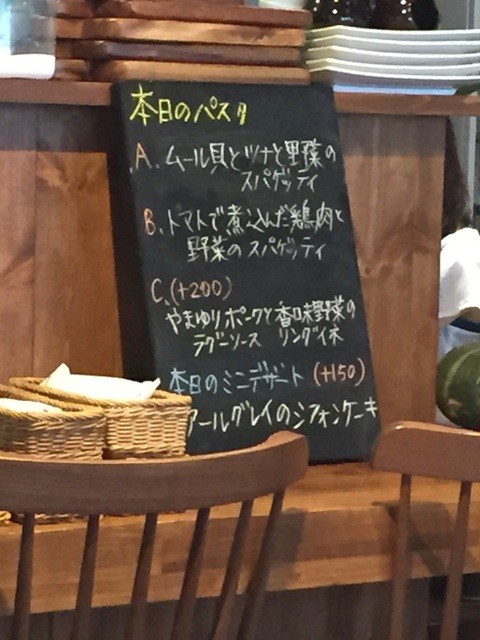 本日のパスタ
A. ムール貝とツナと野菜の
スパゲッティ
B. トマトで煮込んだ鶏肉と
野菜のスパゲッティ
C. (+200)
やまゆりポークと香味野菜の
ラグーソース リングイネ
本日のミニデザート (+150)
アールグレイのシフォンケーキ